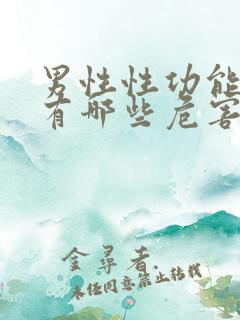 男性性功能
有哪些危害
金尋者.
未经同意禁止转载